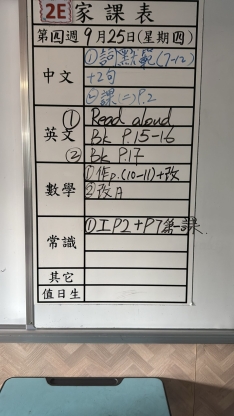 2E 家課表
第四週 9月25日(星期四)
中文
①詞點範(7-12)
+2句
②課(二)P.2
英文
① Read aloud
Bk P.15-16
② Bk P.17
數學
①作p.(10-11)+改
②改A
常識
①工P2+P7第一課
其它
值日生